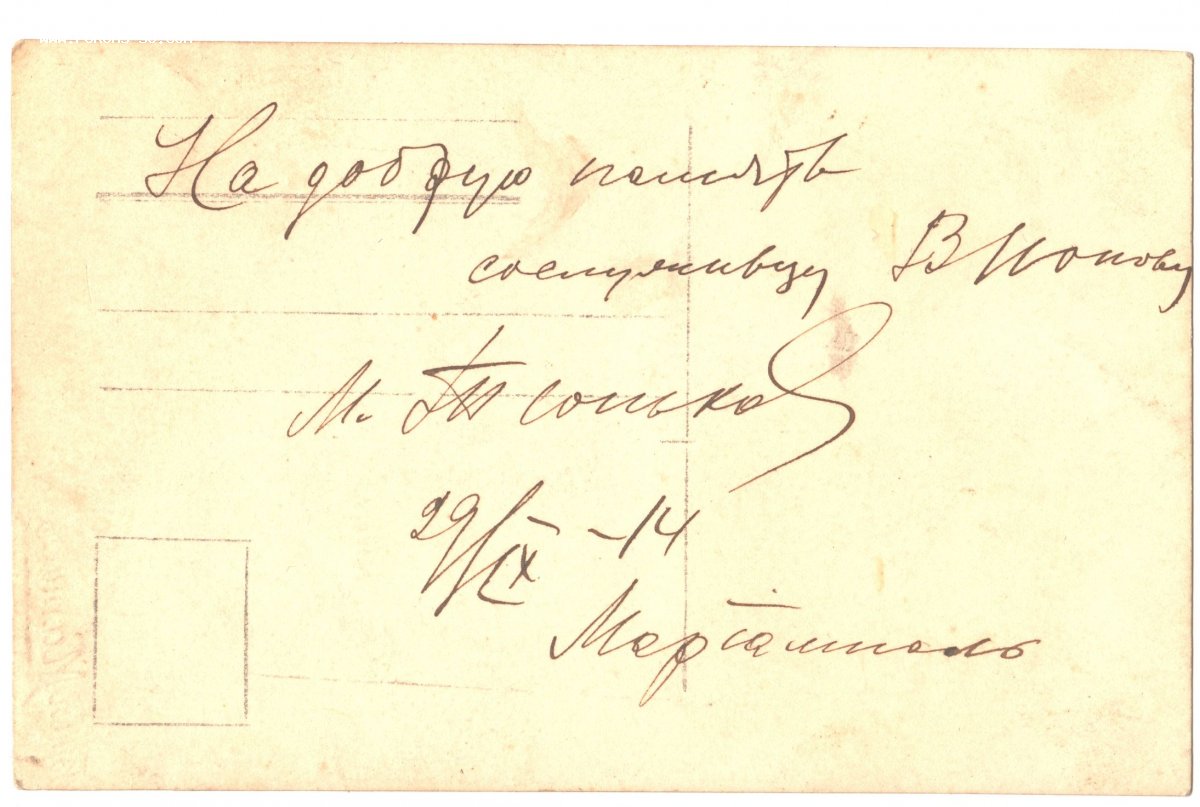 На добрую память
сослуживцу В Попову
М.
29/IX -14
Мариамполь